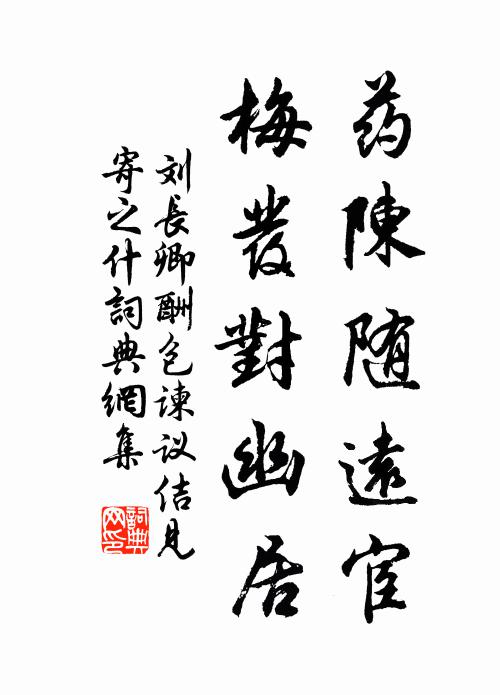 药陳随遠宦
梅發對幽居
刘長卿酬包谏议佶見
寄之什詞典網集
詞典网印